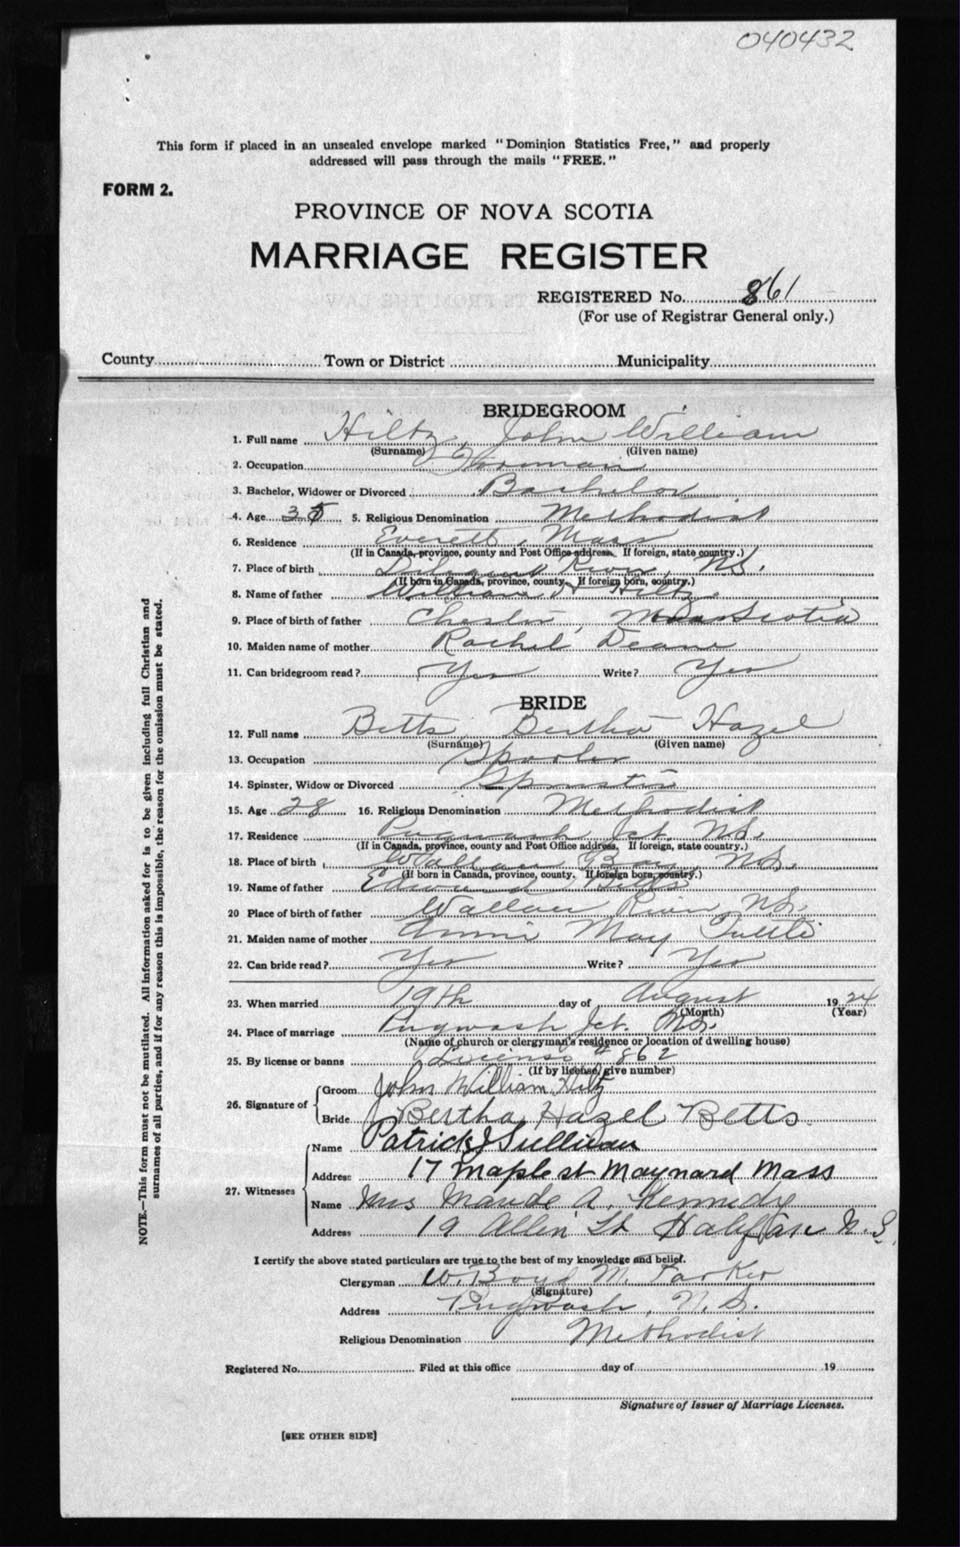 040432
This form if placed in an unsealed envelope marked "Dominion Statistics Free," and properly
addressed will pass through the mails "FREE."
FORM 2.
PROVINCE OF NOVA SCOTIA
MARRIAGE REGISTER
REGISTERED No. 861
(For use of Registrar General only.)
County Town or District Municipality
BRIDEGROOM
1. Full name Hiltz, John William
(Surname) (Given name)
2. Occupation Foreman
3. Bachelor, Widower or Divorced Bachelor
4. Age 35 5. Religious Denomination Methodist
6. Residence Everett, Mass
(If in Canada, province, county and Post Office address. If foreign, state country.)
7. Place of birth Diligent River, N.S.
(If born in Canada, province, county. If foreign born, country.)
8. Name of father William H Hiltz
9. Place of birth of father Chester, Nova Scotia
10. Maiden name of mother Rachel Deane
11. Can bridegroom read? Yes Write? Yes
BRIDE
12. Full name Betts, Bertha Hazel
(Surname) (Given name)
13. Occupation Spooler
14. Spinster, Widow or Divorced Spinster
15. Age 28 16. Religious Denomination Methodist
17. Residence Pugwash Jct. N.S.
(If in Canada, province, county and Post Office address. If foreign, state country.)
18. Place of birth Wallace Bay, N.S.
(If born in Canada, province, county. If foreign born, country.)
19. Name of father Edward Betts
20 Place of birth of father Wallace River N.S.
21. Maiden name of mother Annie May Tuttle
22. Can bride read? Yes Write? Yes
23. When married 19th day of August 1924
(Month) (Year)
24. Place of marriage Pugwash Jct. N.S.
(Name of church or clergyman's residence or location of dwelling house)
25. By license or banns License # 862
(If by license, give number)
26. Signature of Groom John William Hiltz
Bride Bertha Hazel Betts
27. Witnesses Name Patrick J Sullivan
Address 17 Maple st Maynard Mass
Name Mrs Maude A. Kennedy
Address 19 Allen St Halifax N.S.
I certify the above stated particulars are true to the best of my knowledge and belief.
Clergyman W. Boyd M. Parker
(Signature)
Address Pugwash, N.S.
Religious Denomination Methodist
Registered No. Filed at this office day of 19
Signature of Issuer of Marriage Licenses.
[SEE OTHER SIDE]
NOTE.—This form must not be mutilated. All information asked for is to be given including full Christian and
surnames of all parties, and if for any reason this is impossible, the reason for the omission must be stated.